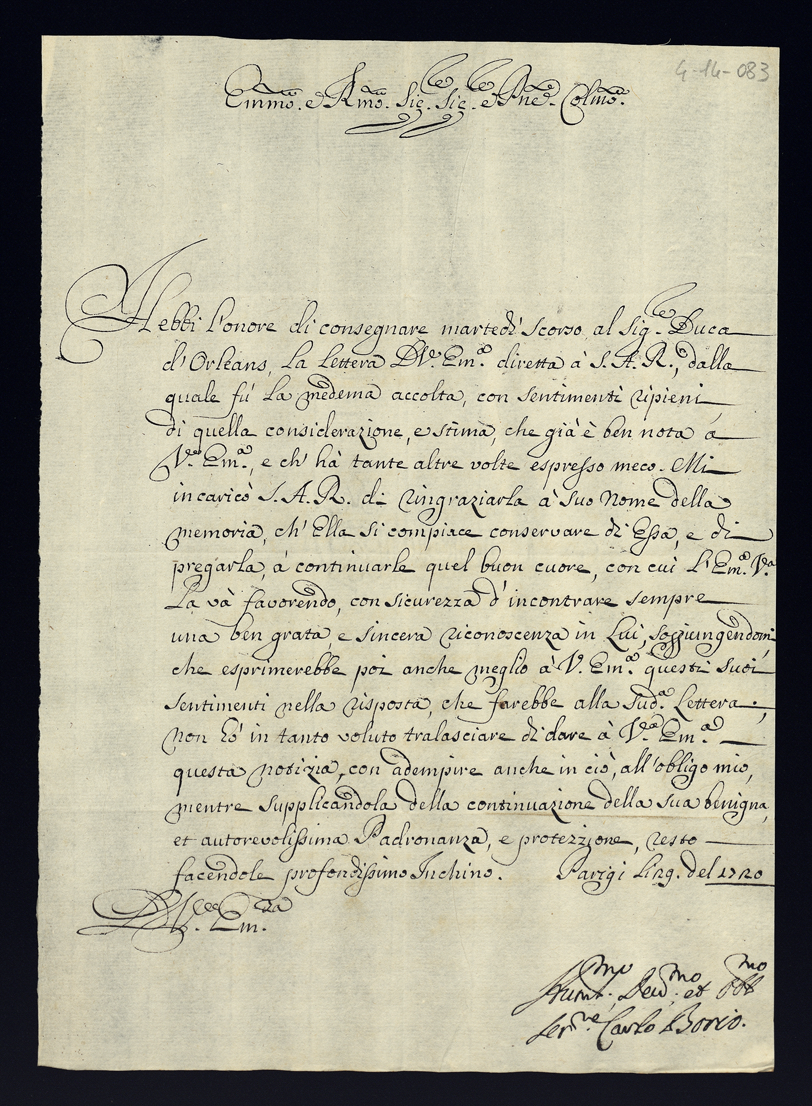 4-14-083
Emmo. e Rmo. Sig.re Sig.re e Pne. Colmo.
Hebbi l'onore di consegnare martedì scorso al Sig.re Duca
d'Orleans, la lettera D. V.ra Em.a diretta à S. A. R.e, dalla
quale fù la medema accolta, con sentimenti ripieni
di quella considerazione, e stima, che già è ben nota à
V.ra Em.a, e ch' hà tante altre volte espresso meco. Mi
incaricò S. A. R. di ringraziarla à suo nome della
memoria, ch' Ella si compiace conservare di Essa, e di
pregarla, à continuarle quel buon cuore, con cui l'Em.a V.a
La và favorendo, con sicurezza d'incontrare sempre
una ben grata, e sincera riconoscenza in Lui, soggiungendomi
che esprimerebbe poi anche meglio à V. Em.a questi suoi
sentimenti nella risposta, che farebbe alla sud.a Lettera;
non hò in tanto voluto tralasciare di dare à V.ra Em.a
questa notizia, con adempire anche in ciò, all'obligo mio,
mentre supplicandola della continuazione della sua benigna,
et autorevolissima Padronanza, e protezzione, resto
facendole profondissimo Inchino. Parigi li 29. del 1720
D. V.ra Em.za
Humil.mo Dev.mo et Obb.mo
Ser.re Carlo Borio.